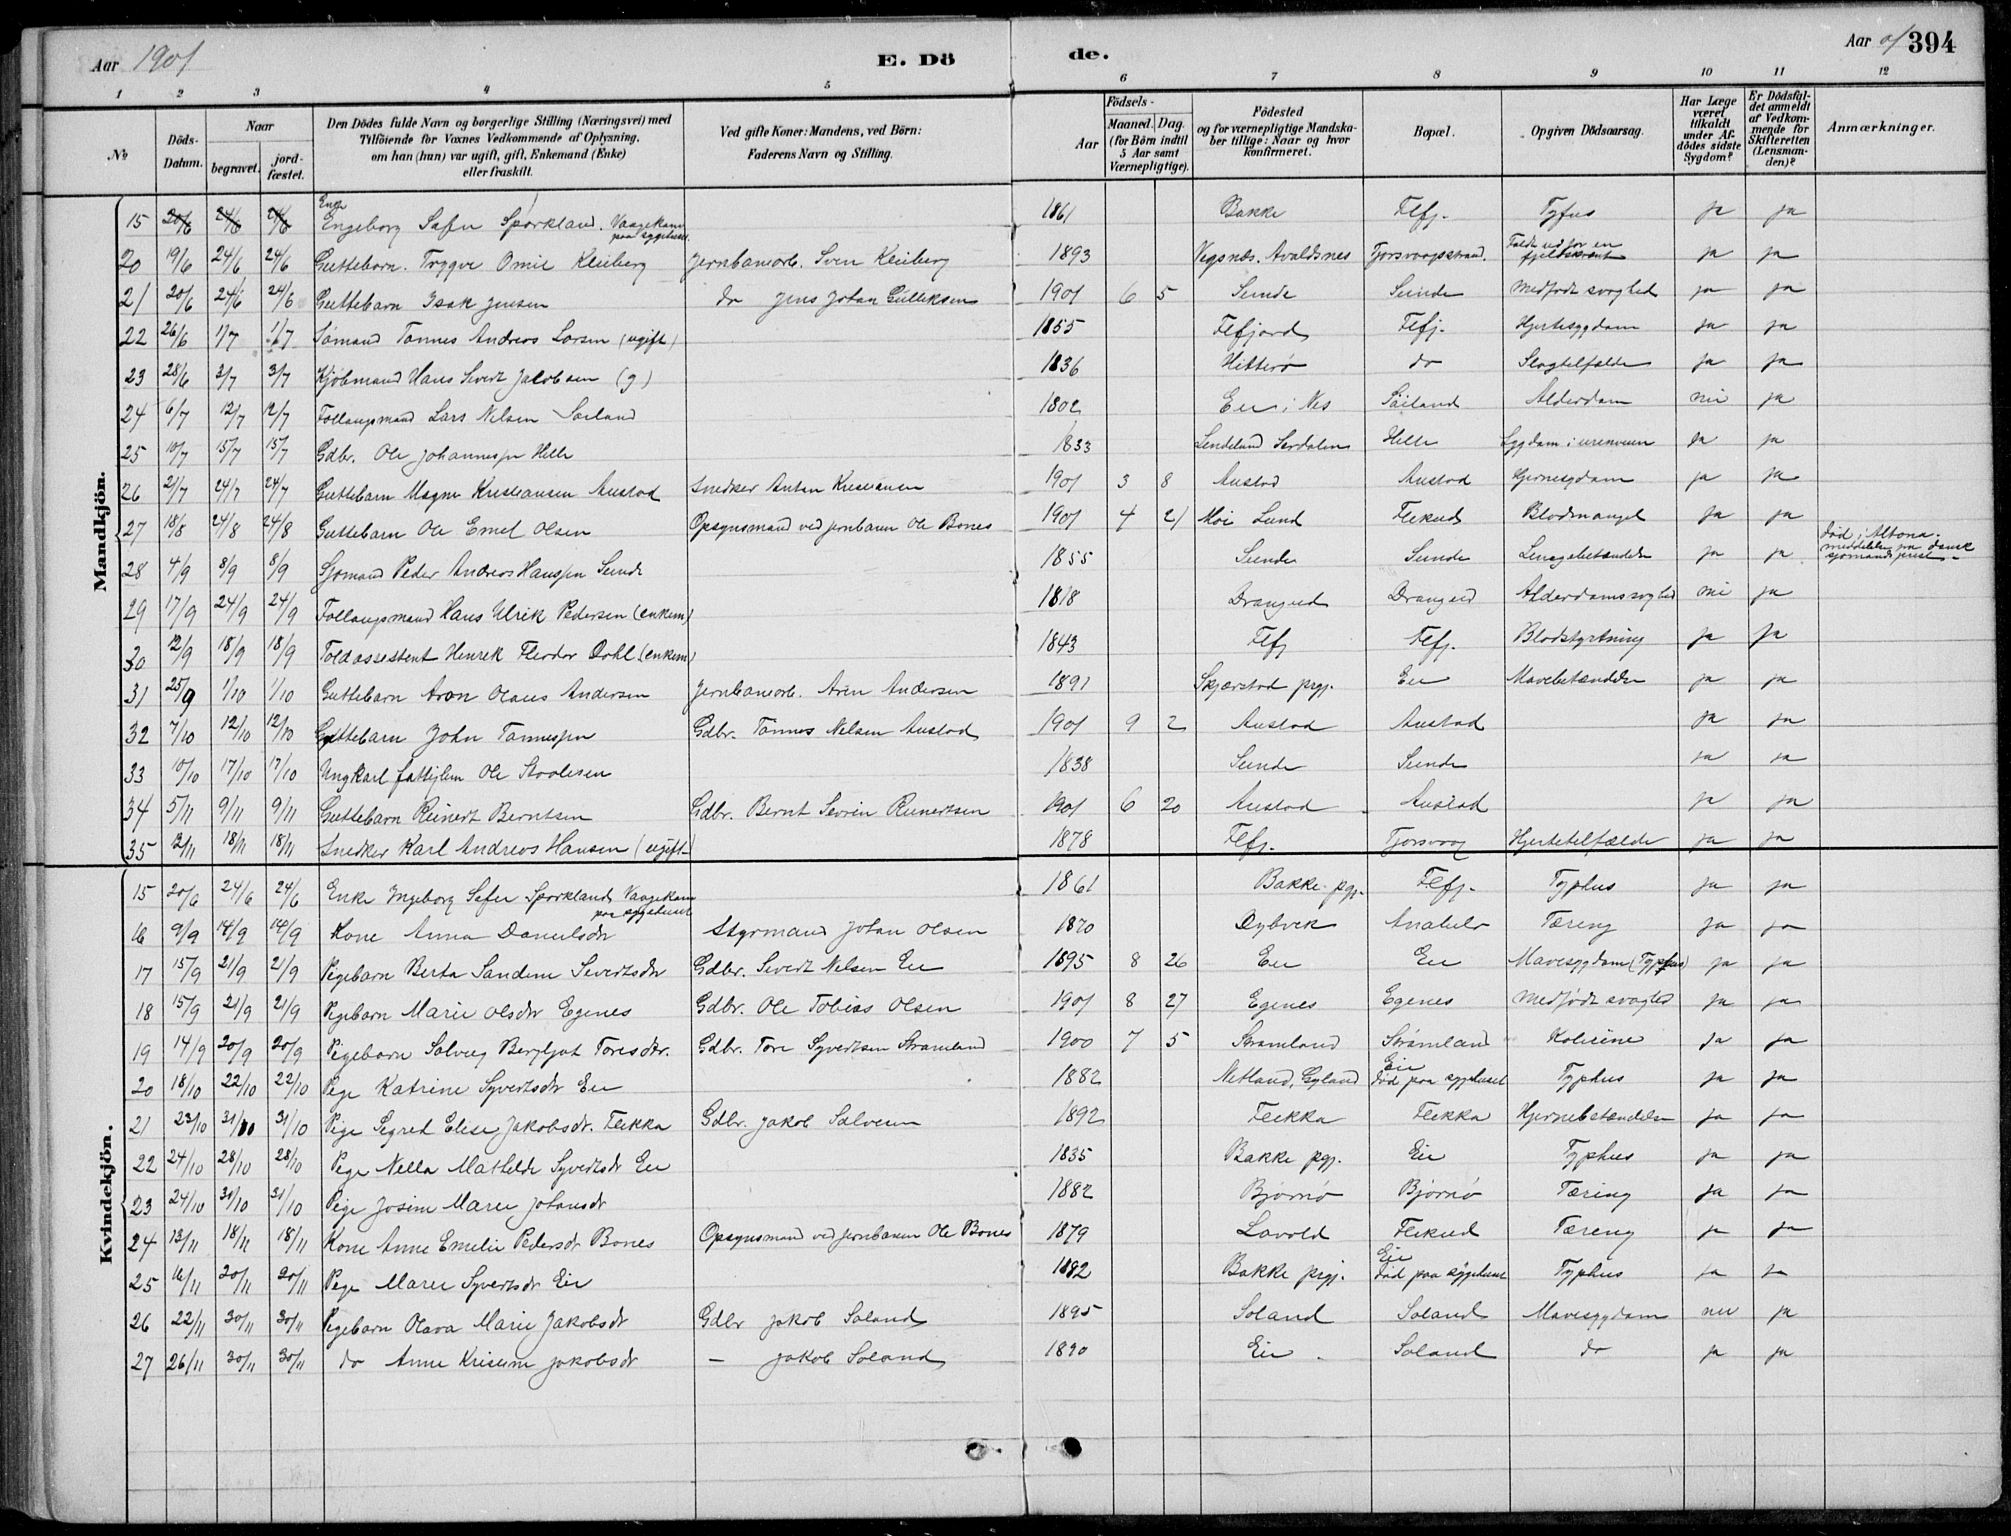 Aar 1901 E. Dö de. Aar 01 394
1 2 3 4 5 6 7 8 9 10 11 12
№ Döds-Datum. Naar begravet. jord-fæstet. Den Dödes fulde Navn og borgerlige Stilling (Næringsvei) med Tilföiende for Voxnes Vedkommende af Oplysning, om han (hun) var ugift, gift, Enkemand (Enke) eller fraskilt. Ved gifte Koner: Mandens, ved Börn: Faderens Navn og Stilling. Födsels- Aar Maaned. Dag. (for Börn indtil 5 Aar samt Værnepligtige). Födested og for værnepligtige Mandska-ber tillige: Naar og hvor konfirmeret. Bopæl. Opgiven Dödsaarsag. Har Læge været tilkaldt under Af-dödes sidste Sygdom? Er Dödsfal-det anmeldt af Vedkom-mende for Skifteretten (Lensman-den)? Anmærkninger.
Mandkjön.
15 20/6 24/6 24/6 Enke Engeborg Sofie Sporkland. Vaagekone paa sygehuset 1861 Bakke Flfj. Tyfus ja ja
20 19/6 24/6 24/6 Guttebarn. Trygve Omil Kleiberg Jernbanearb. Sven Kleiberg 1893 Vigsnæs. Avaldsnes Tjorsvaagstrand. Faldt ud for en fjeldskrænt ja ja
21 20/6 24/6 24/6 Guttebarn Isak Jensen do Jens Johan Gulliksen 1901 6 5 Sunde Sunde Medfödt svaghed ja ja
22 26/6 1/7 1/7 Sömand Tönnes Andreas Larsen (ugift) 1855 Flfjord Flfj. Hjertesygdom ja ja
23 28/6 3/7 3/7 Kjöbmand Hans Sivert Jakobsen (g) 1836 Hitterö do Slagtilfælde ja ja
24 6/7 12/7 12/7 Follaugsmand Lars Nelsen Soiland 1802 Eie i Nes Soiland Alderdom nei ja
25 10/7 15/7 15/7 Gdbr. Ole Johannessen Helle 1833 Lendeland Serdalen Helle Sygdom i urinveien ja ja
26 21/7 24/7 24/7 Guttebarn Magne Kristiansen Austad Snedker Anton Kristiansen 1901 3 8 Austad Austad Hjernesygdom ja ja
27 18/8 24/8 24/8 Guttebarn Ole Emil Olsen Opsynsmand ved jernbanen Ole Bones 1901 4 21 Moi Lund Flikeid Blodmangel ja ja
28 4/9 8/9 8/9 Sjömand Peder Andreas Hanssen Sunde 1855 Sunde Sunde Lungebetændelse ja ja död i Altona. meddelelse fra dansk sjömandsprest
29 17/9 24/9 24/9 Follaugsmand Hans Ulrik Pedersen (enkem) 1818 Drangeid Drangeid Alderdomssvaghed nei ja
30 12/9 18/9 18/9 Toldassistent Henrik Theodor Dahl (enkem) 1843 Flfj Flfj. Blodstyrtning ja ja
31 25/9 1/10 1/10 Guttebarn Aron Olaus Andersen Jernbanearb. Aren Andersen 1891 Skjerstad prgj. Eie Mavebetændelse ja ja
32 7/10 12/10 12/10 Guttebarn John Tönnessen Gdbr. Tönnes Nelsen Austad 1901 9 2 Austad Austad ja ja
33 10/10 17/10 17/10 Ungkarl fattiglem Ole Staalesen 1838 Sunde Sunde ja ja
34 5/11 9/11 9/11 Guttebarn Reinert Berntsen Gdbr. Bernt Severin Reinertsen 1901 6 20 Austad Austad ja ja
35 12/11 18/11 18/11 Snedker Karl Andreas Hansen (ugift) 1878 Flfj. Tjorsvaag Hjertetilfælde ja ja
Kvindekjön.
15 20/6 24/6 24/6 Enke Ingeborg Sofie Sporkland Vaagekone paa sygehuset 1861 Bakke pgj. Flfj. Typhus ja ja
16 9/9 14/9 14/9 Kone Anna Danielsdtr Styrmand Johan Olsen 1870 Dybvik Anabelö Tæring ja ja
17 15/9 21/9 21/9 Pigebarn Berta Sandine Sivertsdtr Gdbr. Sivert Nelsen Eie 1895 8 26 Eie Eie Mavesygdom (Typhus) ja ja
18 15/9 21/9 21/9 Pigebarn Marie Olsdtr Egenes Gdbr. Ole Tobias Olsen 1901 8 27 Egenes Egenes Medfödt svaghed ja ja
19 14/9 20/9 20/9 Pigebarn Solveig Bergljot Toresdtr. Gdbr. Tore Syvertsen Strømland 1900 7 5 Strømland Strømland Kolerine ja ja
20 18/10 22/10 22/10 Pige Katrine Syvertsdtr Eie 1882 Netland, Gyland Eie död paa sygehuset Typhus ja ja
21 23/10 31/10 31/10 Pige Sigrid Elise Jakobsdtr. Flikka Gdbr. Jakob Salvesen 1892 Flikka Flikka Hjernebetændelse ja ja
22 24/10 28/10 28/10 Pige Nella Mathilde Syvertsdtr Eie 1835 Bakke pgj. Eie Typhus ja ja
23 24/10 31/10 31/10 Pige Josine Marie Johansdtr 1882 Bjørnø Bjørnø Tæring ja ja
24 13/11 18/11 18/11 Kone Anne Emelie Pedersdtr Bones Opsynsmand ved jernbanen Ole Bones 1879 Lavold Flikeid Tæring ja ja
25 16/11 20/11 20/11 Pige Marie Syvertsdtr Eie 1882 Bakke prgj. Eie död paa sygehuset Typhus ja ja
26 22/11 30/11 30/11 Pigebarn Olava Marie Jakobsdtr Gdbr Jakob Soland 1895 Soland Soland Mavesygdom nei ja
27 26/11 30/11 30/11 do Anne Kristine Jakobsdtr — Jakob Soland 1890 Eie Soland do ja ja